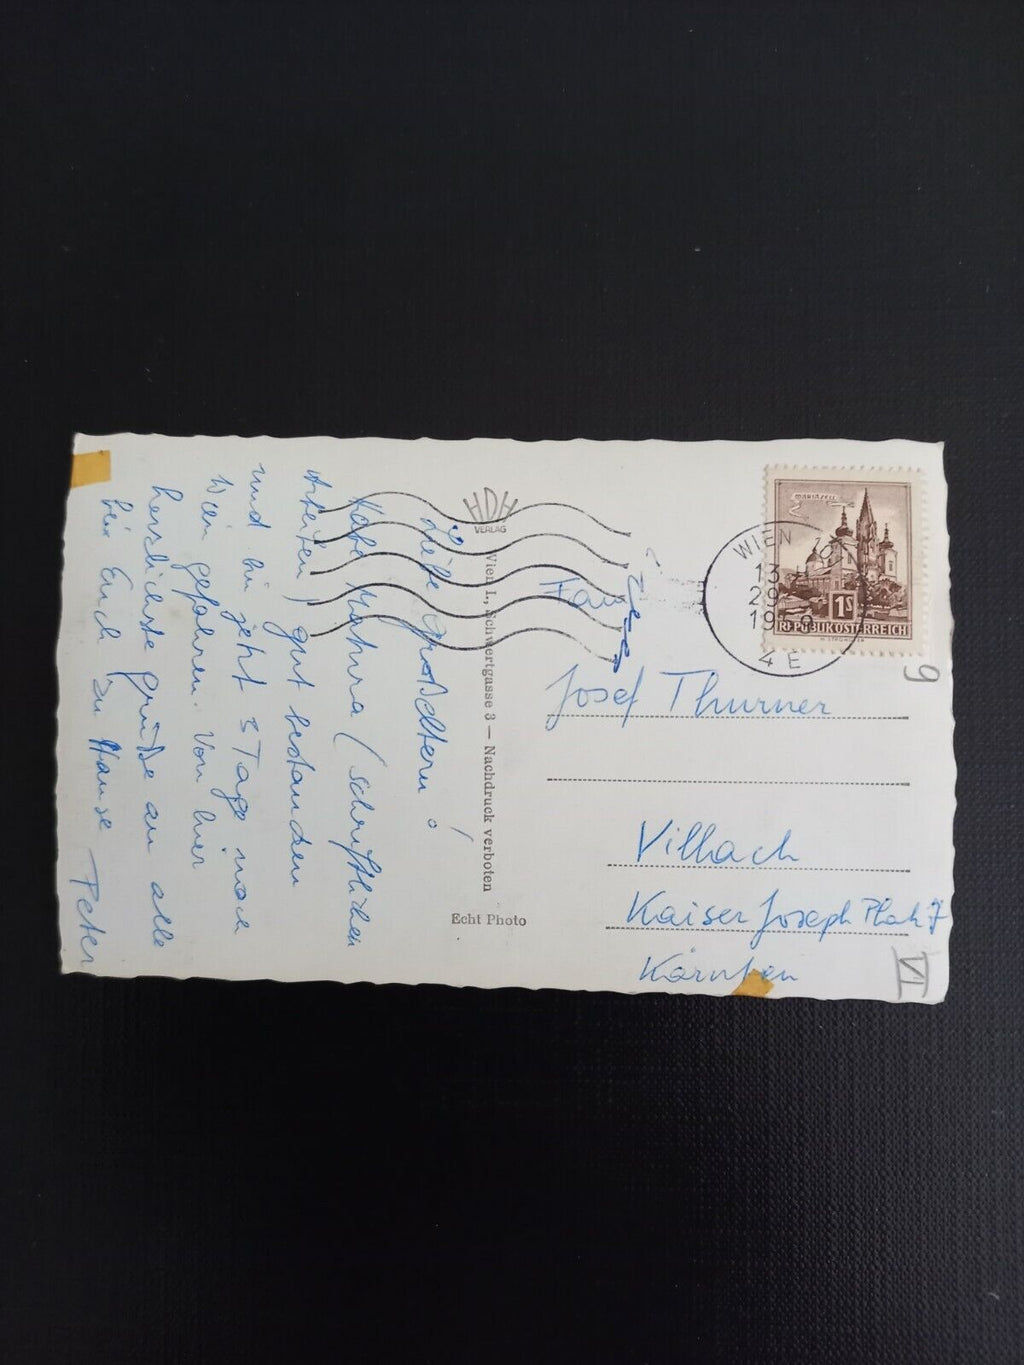 Liebe Großeltern!
Habe Mathura (schriftlichen
Arbeiten) gut bestanden
und bin jetzt 3 Tage nach
Wien gefahren. Von hier
herzlichste Grüße an alle
bei Euch zu Hause
Peter
HDH
VERLAG
Wien I., Schwertgasse 3 — Nachdruck verboten
Echt Photo
MARIAZELL
1S
REPUBLIK ÖSTERREICH
WIEN 101
13
29
19
4 E
Fam
Josef Thurner
Villach
Kaiser Joseph Platz 7
Kärnten
9
VI